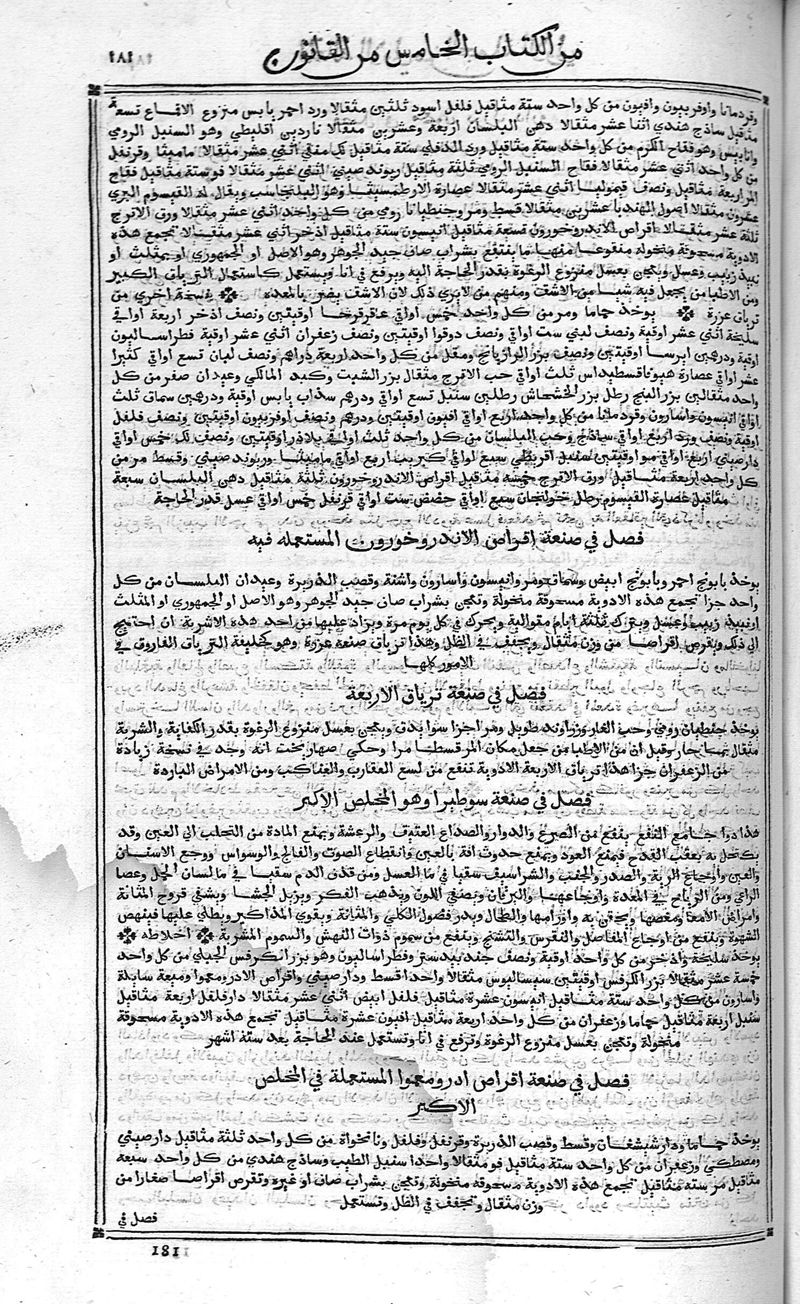 من الكتاب الخامس من القانون
١٨١
وقردمانا واوفربيون وافيون من كل واحد ستة مثاقيل فلفل اسود ثلثين مثقالا ورد احمر يابس منزوع الاقماع تسعة
مثاقيل ساذج هندي اثنا عشر مثقالا دهن البلسان اربعة وعشرين مثقالا ناردين اقليطي وهو السنبل الرومي
من كل واحد اثني عشر مثقالا فقاح السنبل الرومي ثلثة مثاقيل ريوند صيني اثني عشر مثقالا فو ستة مثاقيل فقاح
عشرون مثقالا اصول الهندبا عشرين مثقالا قسط ومر وجنطيانا رومي من كل واحد اثني عشر مثقالا ورق الاترج
ثلثة عشر مثقالا اقراص الاندروخورون تسعة مثاقيل انيسون ستة مثاقيل اذخر اثني عشر مثقالا تجمع هذه
الادوية مسحوقة منخولة منقوعا منها ما ينتقع بشراب صاف جيد الجوهر وهو الاصل او الجمهوري او بمثلث او
نبيذ زبيب وعسل وتعجن بعسل منزوع الرغوة بقدر الحاجة اليه ويرفع في انا ويستعمل كاستعمال الترياق الكبير
ومن الاطبا من يجعل فيه شيا من الاشق ومنهم من لا يري ذلك لان الاشق يضر بالمعدة ❖ نسخة اخري من
ترياق عزرة ❖ يوخذ حماما ومر من كل واحد خمس اواقي عاقرقرحا اوقيتين ونصف اذخر اربعة اواقي
سليخة اثني عشر اوقية ونصف لبني ست اواقي ونصف دوقوا اوقيتين ونصف زعفران اثني عشر اوقية فطراساليون
اوقية ودرهمين ايرسا اوقيتين ونصف بزر الرازيانج ومقل من كل واحد اربعة دراهم ونصف لبان تسع اواقي كثيرا
عشر اواقي عصارة هيوفاقسطيداس ثلث اواقي حب الاترج مثقال بزر الشبت وكبد المالكي وعيدان صفر من كل
واحد مثقالين بزر البنج رطل بزر الخشخاش رطلين سنبل تسع اواقي ودرهم سذاب يابس اوقية ودرهمين سماق ثلث
اواقي انيسون واسارون وقردمانا من كل واحد اربع اواقي افيون اوقيتين ودرهم ونصف اوفربيون اوقيتين ونصف فلفل
اوقية ونصف ورد اربع اواقي ساذج وحب البلسان من كل واحد ثلث اواقي بلاذر اوقيتين ونصف لك خمس اواقي
دارصيني اربع اواقي مو اوقيتين سنبل اقريطي سبع اواقي كبريت اربع اواقي ماميثا وريوند صيني وقسط مر من
كل واحد اربعة مثاقيل ورق الاترج خمسة مثاقيل اقراص الاندروخورون ثلثة مثاقيل دهن البلسان سبعة
مثاقيل عصارة القيسوم رطل خولنجان سبع اواقي حضض ست اواقي قرنفل خمس اواقي عسل قدر الحاجة
فصل في صنعة اقراص الاندروخورون المستعمله فيه
يوخذ بابونج احمر وبابونج ابيض وسماق ومر وانيسون واسارون واشنة وقصب الذريرة وعيدان البلسان من كل
واحد جزا تجمع هذه الادوية مسحوقة منخولة وتعجن بشراب صاف جيد الجوهر وهو الاصل او الجمهوري او المثلث
او نبيذ زبيب وعسل ويترك ثلثة ايام متوالية ويحرك في كل يوم مرة ويزاد عليها من احد هذه الاشربة ان احتيج
الي ذلك ويقرص اقراصا من وزن مثقال ويجفف في الظل وهذا ترياق صنعة عزرة وهو كخليفة الترياق الفاروق في
الامور كلها
فصل في صنعة ترياق الاربعة
يوخذ جنطيان رومي وحب الغار وزراوند طويل ومر اجزا سوا يدق ويعجن بعسل منزوع الرغوة بقدر الكفاية والشربة
مثقال بما حار وقيل ان من الاطبا من جعل مكان المر قسطا مرا وحكي صهاربخت انه وجد في نسخة زيادة
من الزعفران جزا هذا ترياق الاربعة الادوية تنفع من لسع العقارب والعناكب ومن الامراض الباردة
فصل في صنعة سوطيرا وهو المخلص الاكبر
هذا دوا جامع النفع ينفع من الصرع والدوار والصداع العتيق والرعشة ويمنع المادة من التحلب الي العين وقد
يكتحل به بعقب القدح فيمنع العود ويمنع حدوث افة بالعين وانقطاع الصوت والفالج والوسواس ووجع الاسنان
والعين واوجاع الرية والصدر والجنب والشراسيف سقيا في ما العسل ومن قذف الدم سقيا في ما لسان الحمل وعصا
الراعي ومن الرياح في المعدة واوجاعها واليرقان ويصفي اللون ويذهب الفكر ويزيل الجشا ويشفي قروح المثانة
وامراض الامعا ومغصها ويحقن به واورامها والطحال ويدر فضول الكلي والمثانة ويقوي المذاكير ويطلي عليها فينهض
الشهوة وينفع من اوجاع المفاصل والنقرس والتشنج وينفع من سموم ذوات النهش والسموم المشربة ❖ اخلاطه ❖
يوخذ سليخة واذخر من كل واحد اوقية ونصف جند بيدستر وفطراساليون وهو بزر الكرفس الجبلي من كل واحد
خمسة عشر مثقالا بزر الكرفس اوقيتين سيساليوس مثقالا واحدا قسط ودارصيني واقراص الادرومعموا وميعة سايلة
واسارون من كل واحد ستة مثاقيل انيسون عشرة مثاقيل فلفل ابيض اثني عشر مثقالا دارفلفل اربعة مثاقيل
سنبل اربعة مثاقيل حماما وزعفران من كل واحد اربعة مثاقيل افيون عشرة مثاقيل تجمع هذه الادوية مسحوقة
منخولة وتعجن بعسل منزوع الرغوة وترفع في انا وتستعمل عند الحاجة بعد ستة اشهر
فصل في صنعة اقراص ادرومعموا المستعملة في المخلص
الاكبر
يوخذ حماما ودارشيشعان وقسط وقصب الذريرة وقرنفل وفلفل ونانخواة من كل واحد ثلثة مثاقيل دارصيني
ومصطكي وزعفران من كل واحد ستة مثاقيل فو مثقالا واحدا سنبل الطيب وساذج هندي من كل واحد سبعة
مثاقيل مر ستة مثاقيل تجمع هذه الادوية مسحوقة منخولة وتعجن بشراب صاف او غيره وتقرص اقراصا صغارا من
وزن مثقال وتجفف في الظل وتستعمل
فصل في
181